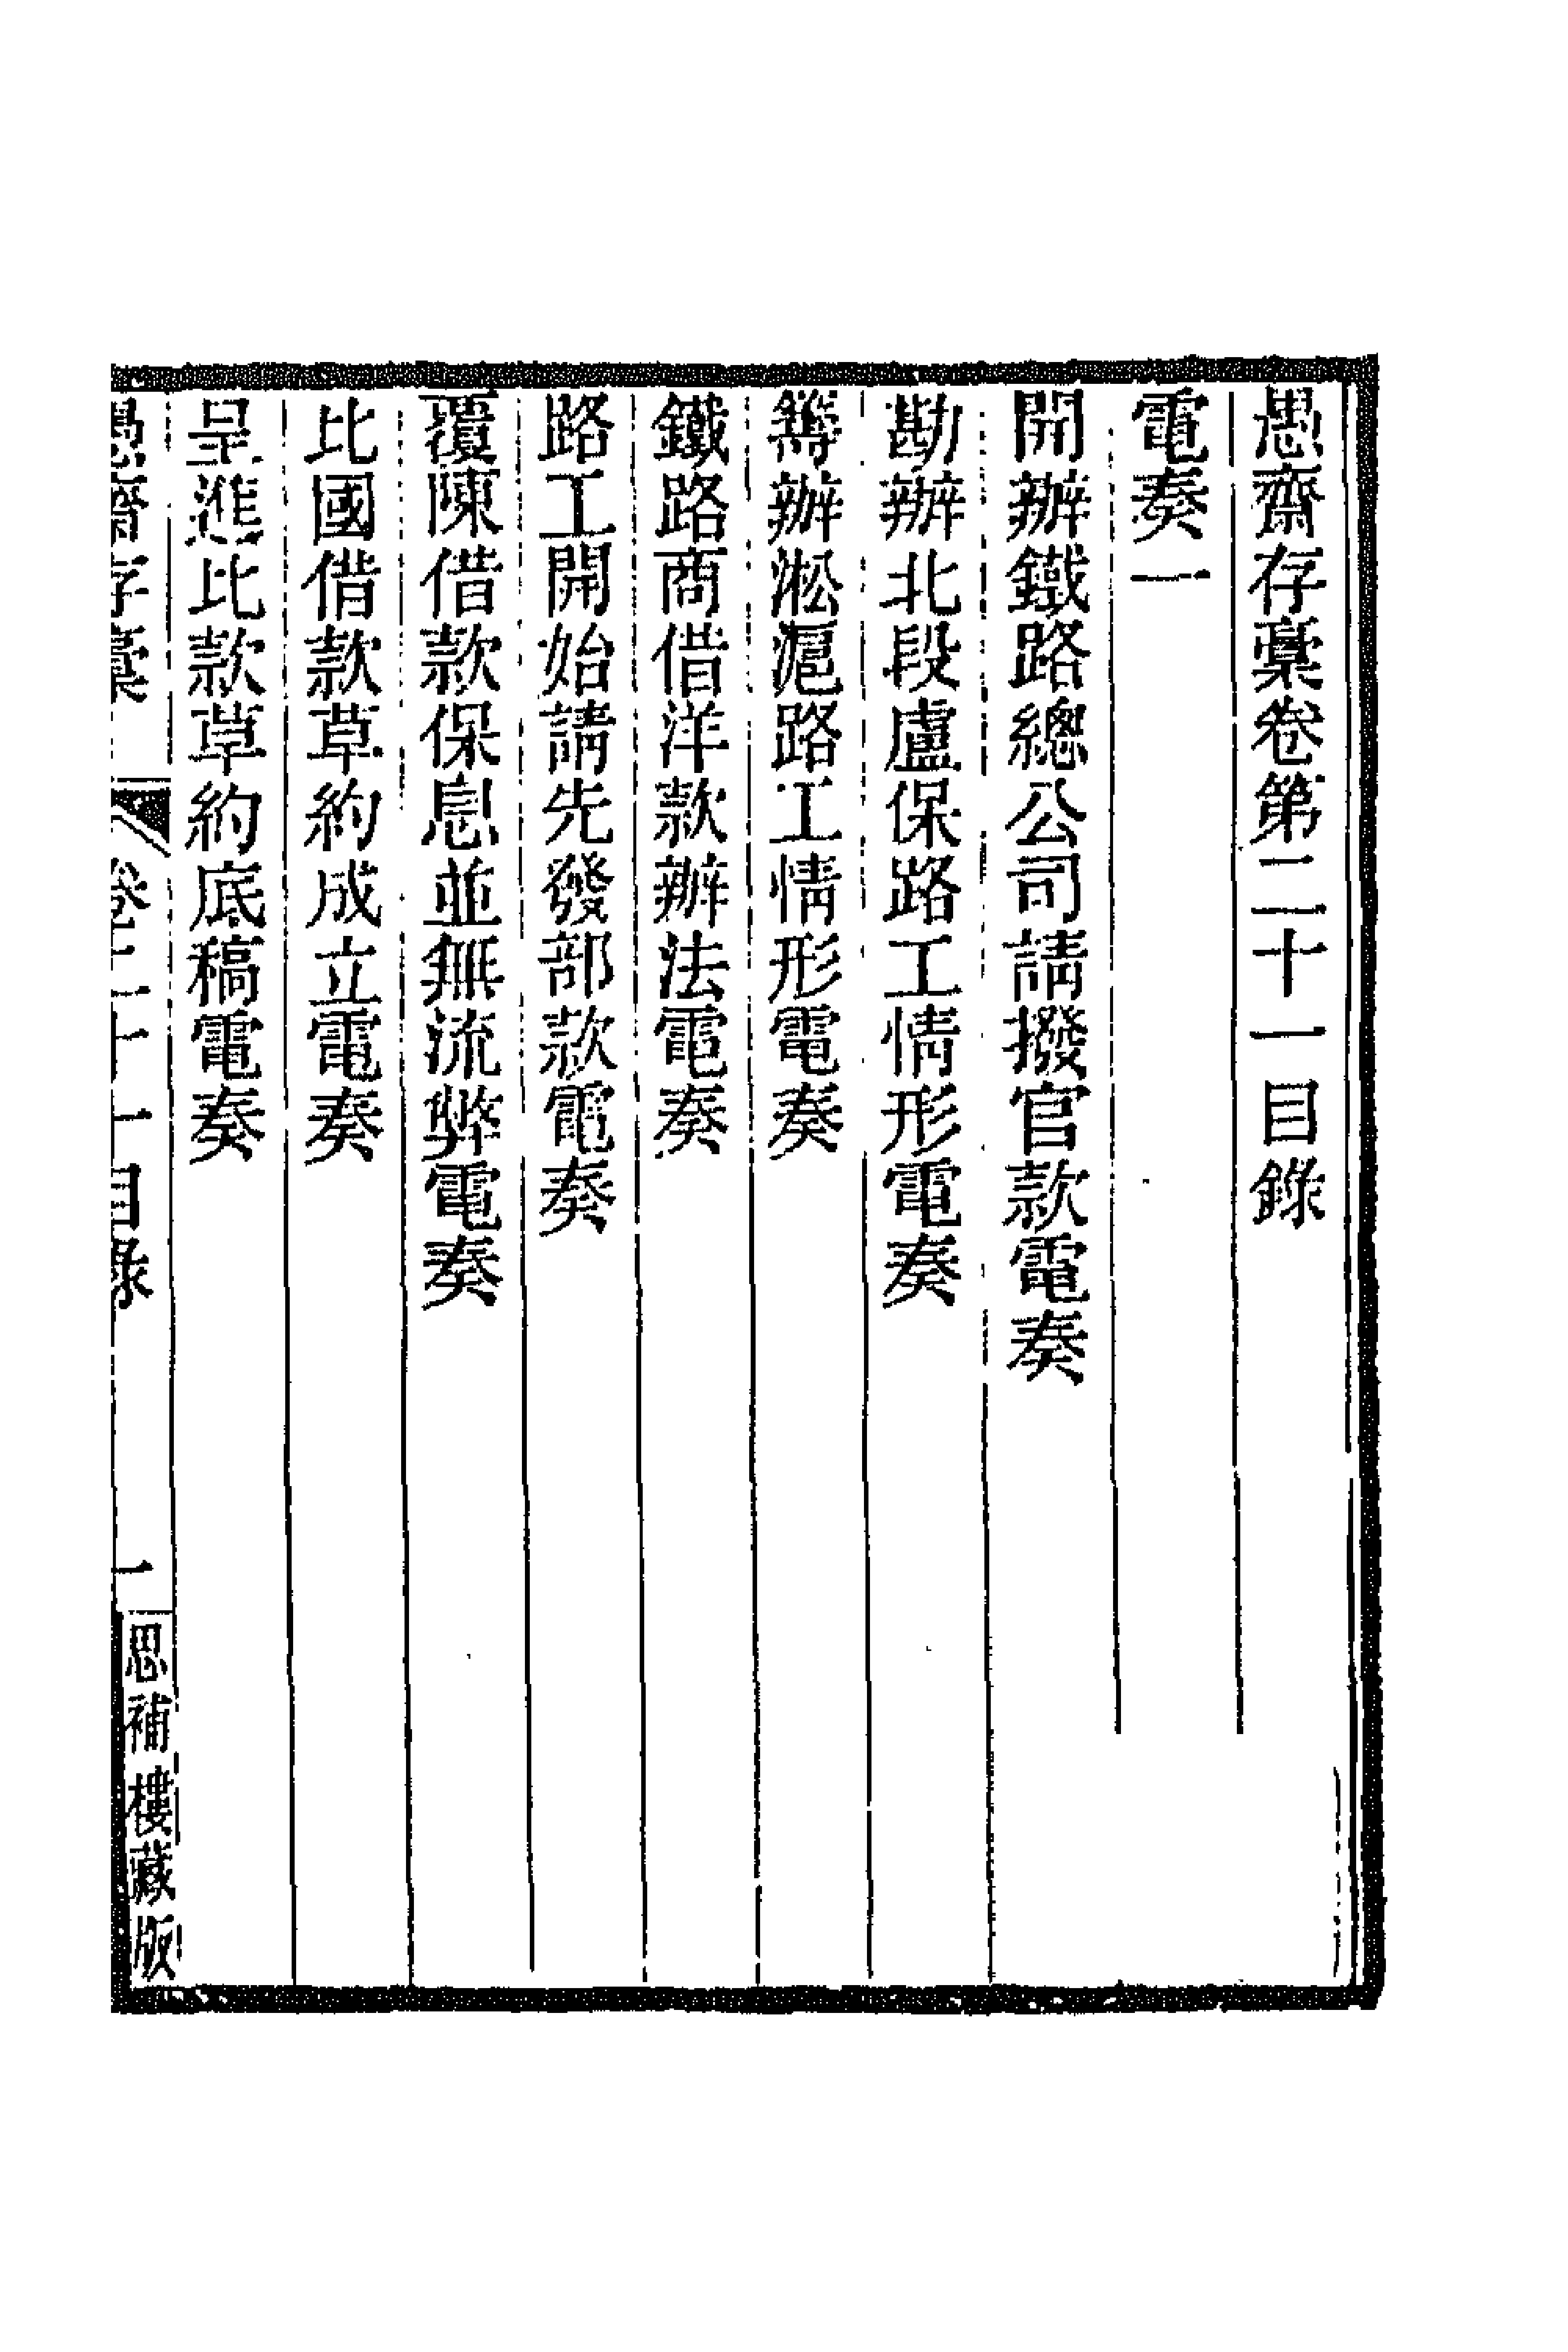 愚齋存稾卷第二十一目錄
電奏一
開辦鐵路總公司請撥官款電奏
勘辦北段盧保路工情形電奏
籌辦淞滬路工情形電奏
鐵路商借洋款辦法電奏
路工開始請先發部款電奏
覆陳借款保息並無流弊電奏
比國借款草約成立電奏
呈進比款草約底稿電奏
愚齋存稾 卷二十一目錄 一 思補樓藏版